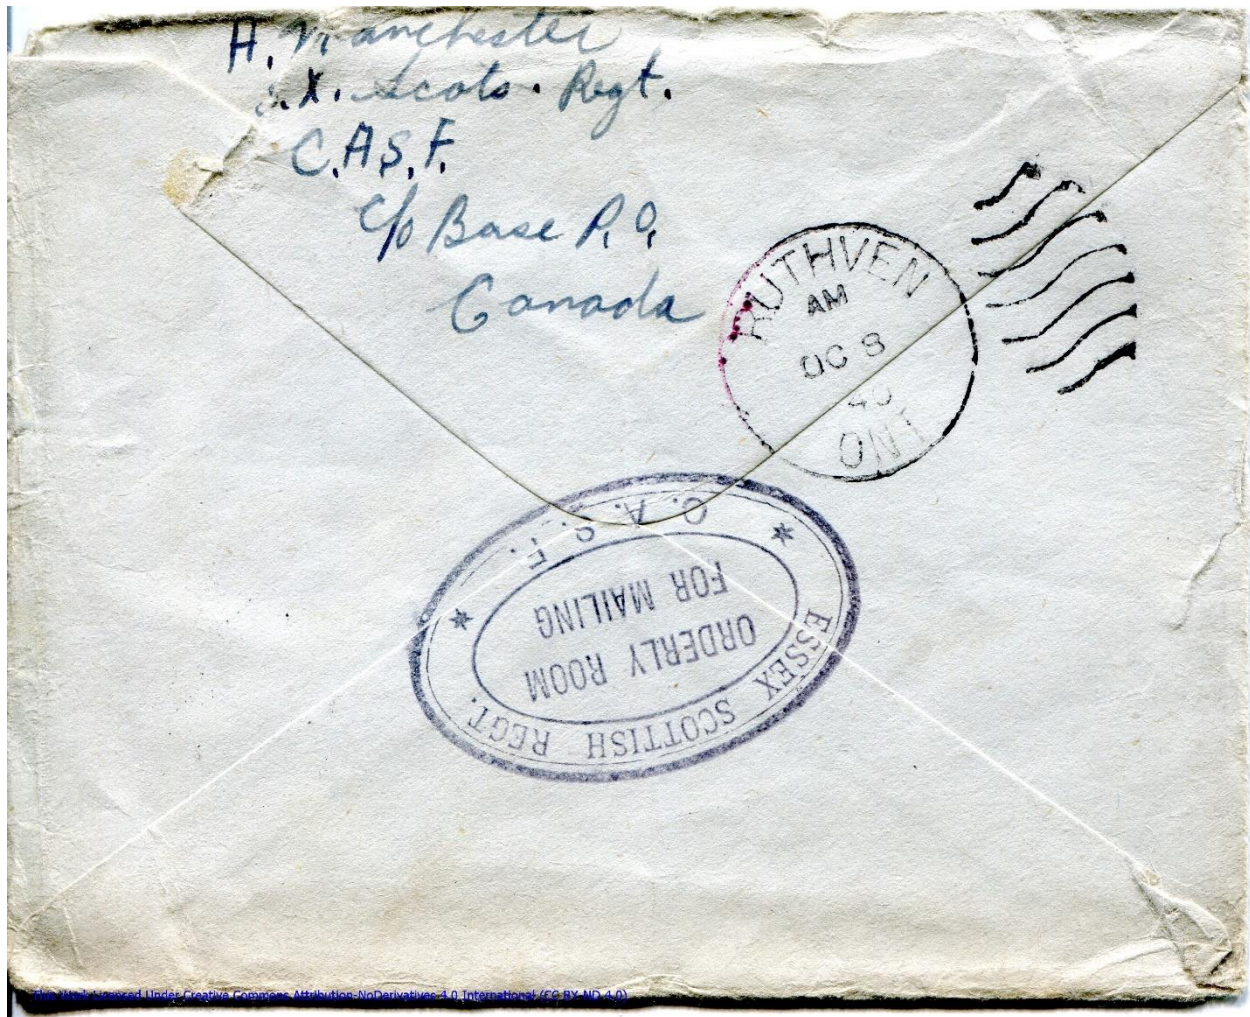 H. Manchester
S.X. Scots. Regt.
C.A.S.F.
c/o Base P.O.
Canada
RUTHVEN
AM
OC 8
ONT
ESSEX SCOTTISH REGT.
ORDERLY ROOM
FOR MAILING
* C. A. S. F. *
This Work Licensed Under Creative Commons Attribution-NoDerivatives 4.0 International (CC BY-ND 4.0)